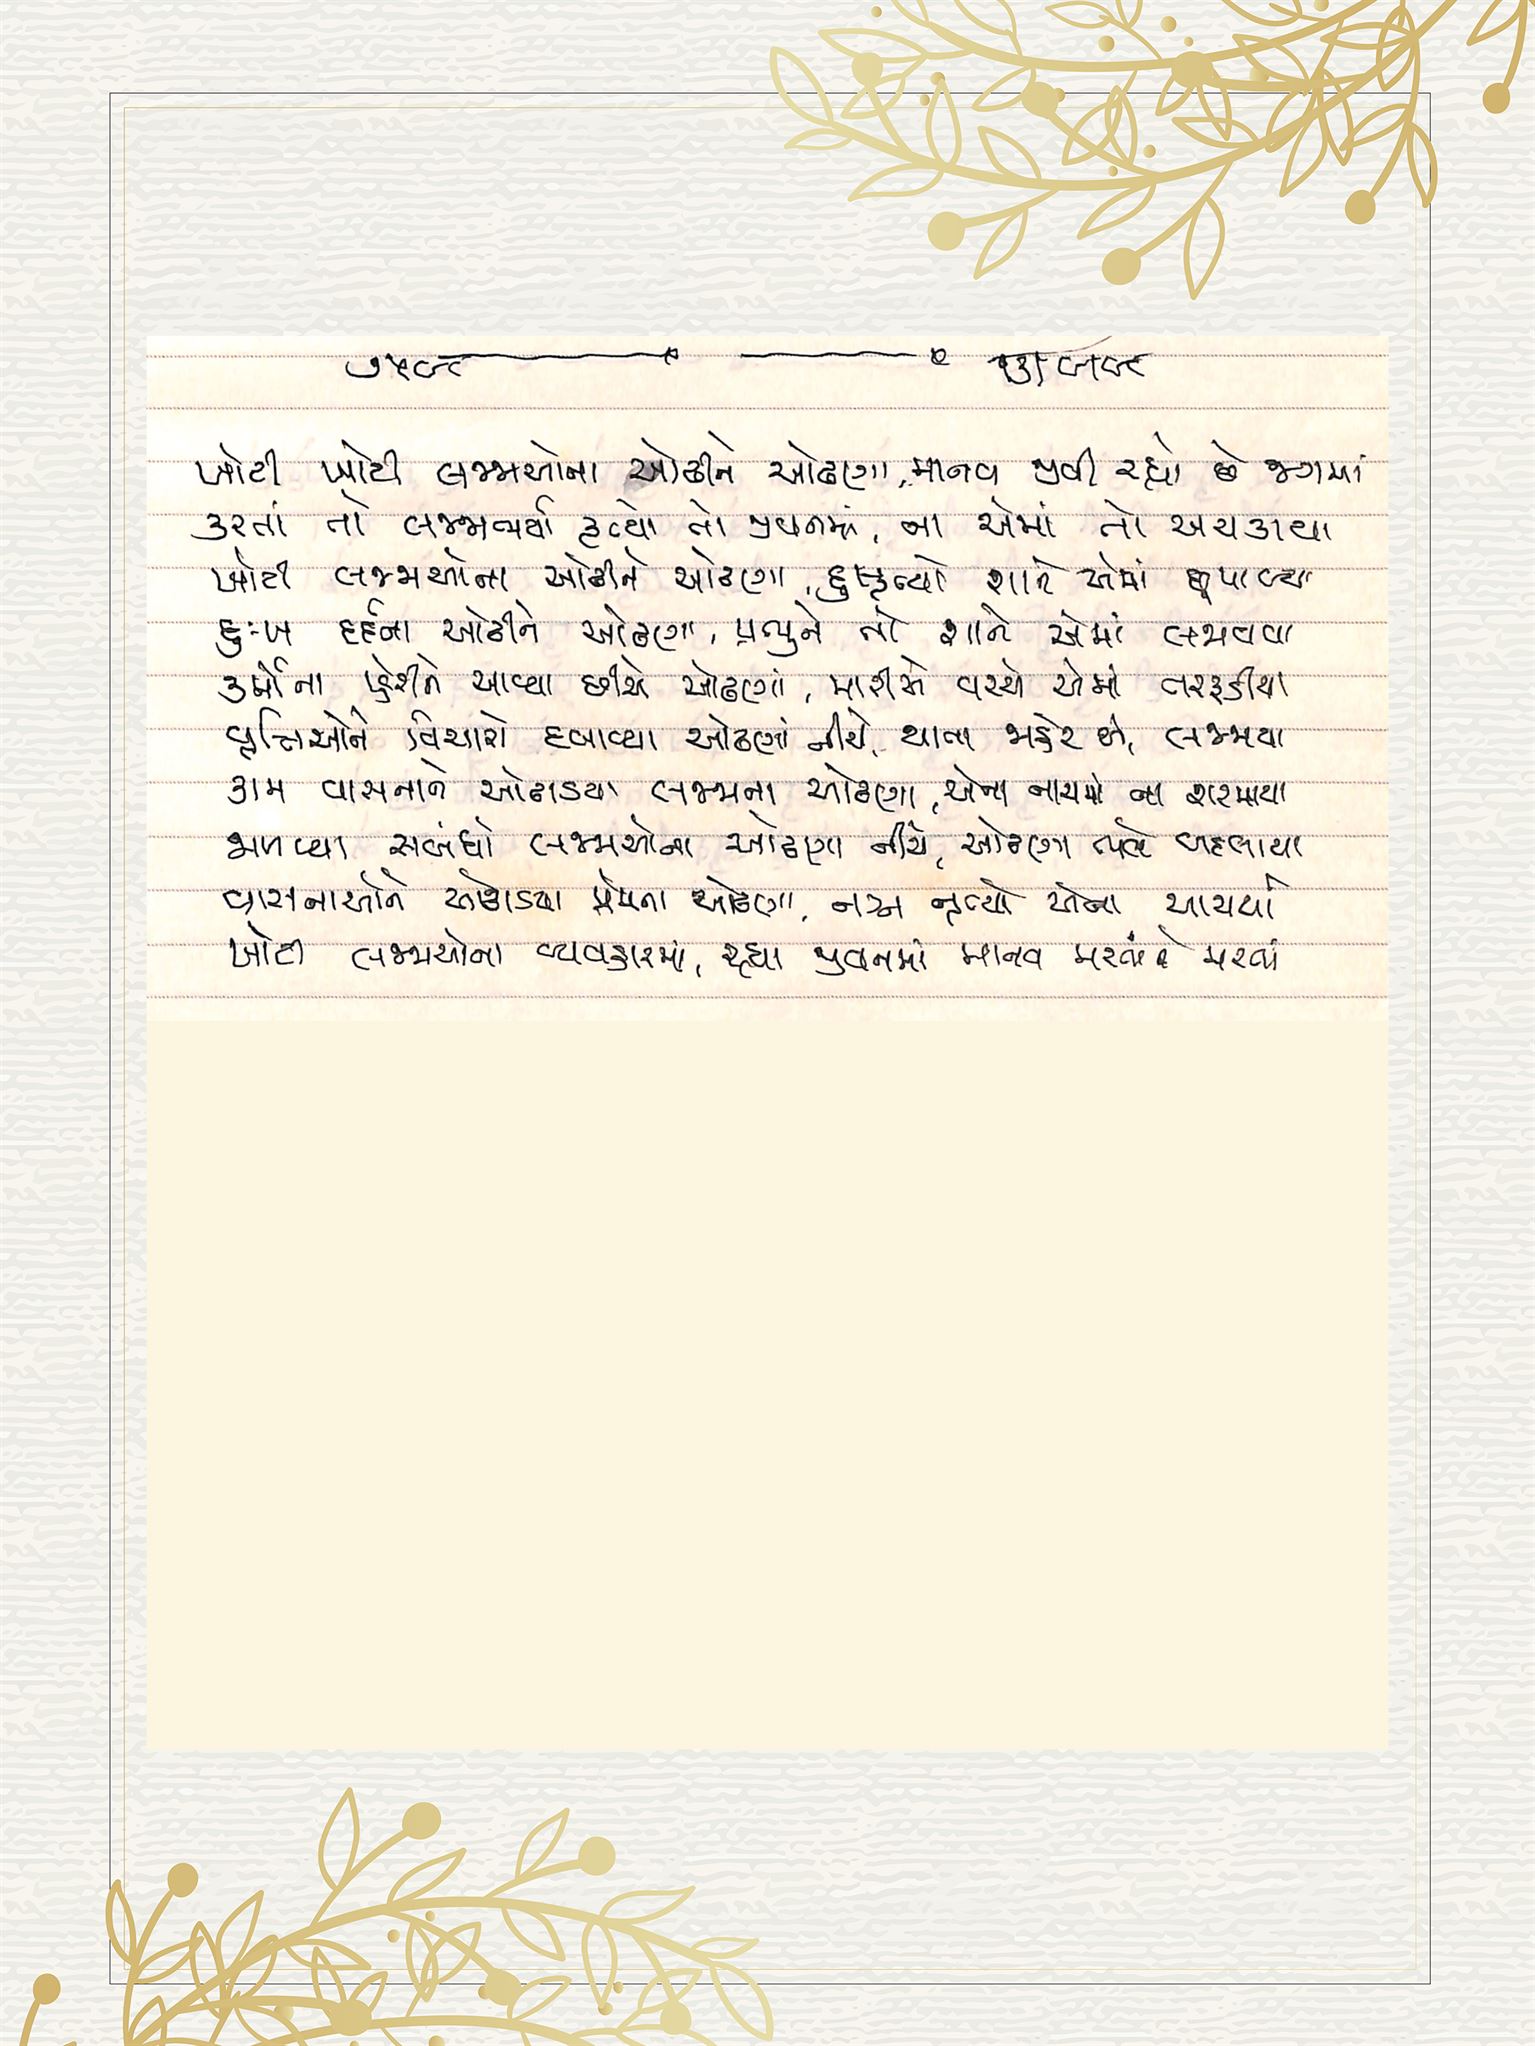 ખોટી ખોટી લજ્જાઓના ઓઢીને ઓઢણા, માનવ જીવી રહ્યો છે જગમાં
કરતાં તો લજ્જાભર્યા કૃત્યો તો જીવનમાં, ના એમાં તો અચકાયા
ખોટી લજ્જાઓના ઓઢીને ઓઢણા, દુષ્કૃત્યો શાને એમાં છુપાવ્યા
દુઃખ દર્દના ઓઢીને ઓઢણા, પ્રભુને તો શાને એમાં લજવવા
કર્મોના પહેરીને આવ્યા છીએ ઓઢણાં, મારીએ વચ્ચે એમાં તરફડીયા
વૃત્તિઓને વિચારો દબાવ્યા ઓઢણાં નીચે, થાતા જાહેર છો, લજ્જાયા
કામ વાસનાને ઓઢાડયા લજ્જાના ઓઢણા, એના નાચમાં ના શરમાયા
જાળવ્યા સબંધો લજ્જાઓના ઓઢણા નીચે, ઓઢણા બદલાયા
વાસનાઓને ઓઢાડયા પ્રેમના ઓઢણા, નગ્ન નૃત્યો એના આચર્યા
ખોટી લજ્જાઓના વ્યવહારમાં, રહ્યા જીવનમાં માનવ મરતાં ને મરતાં